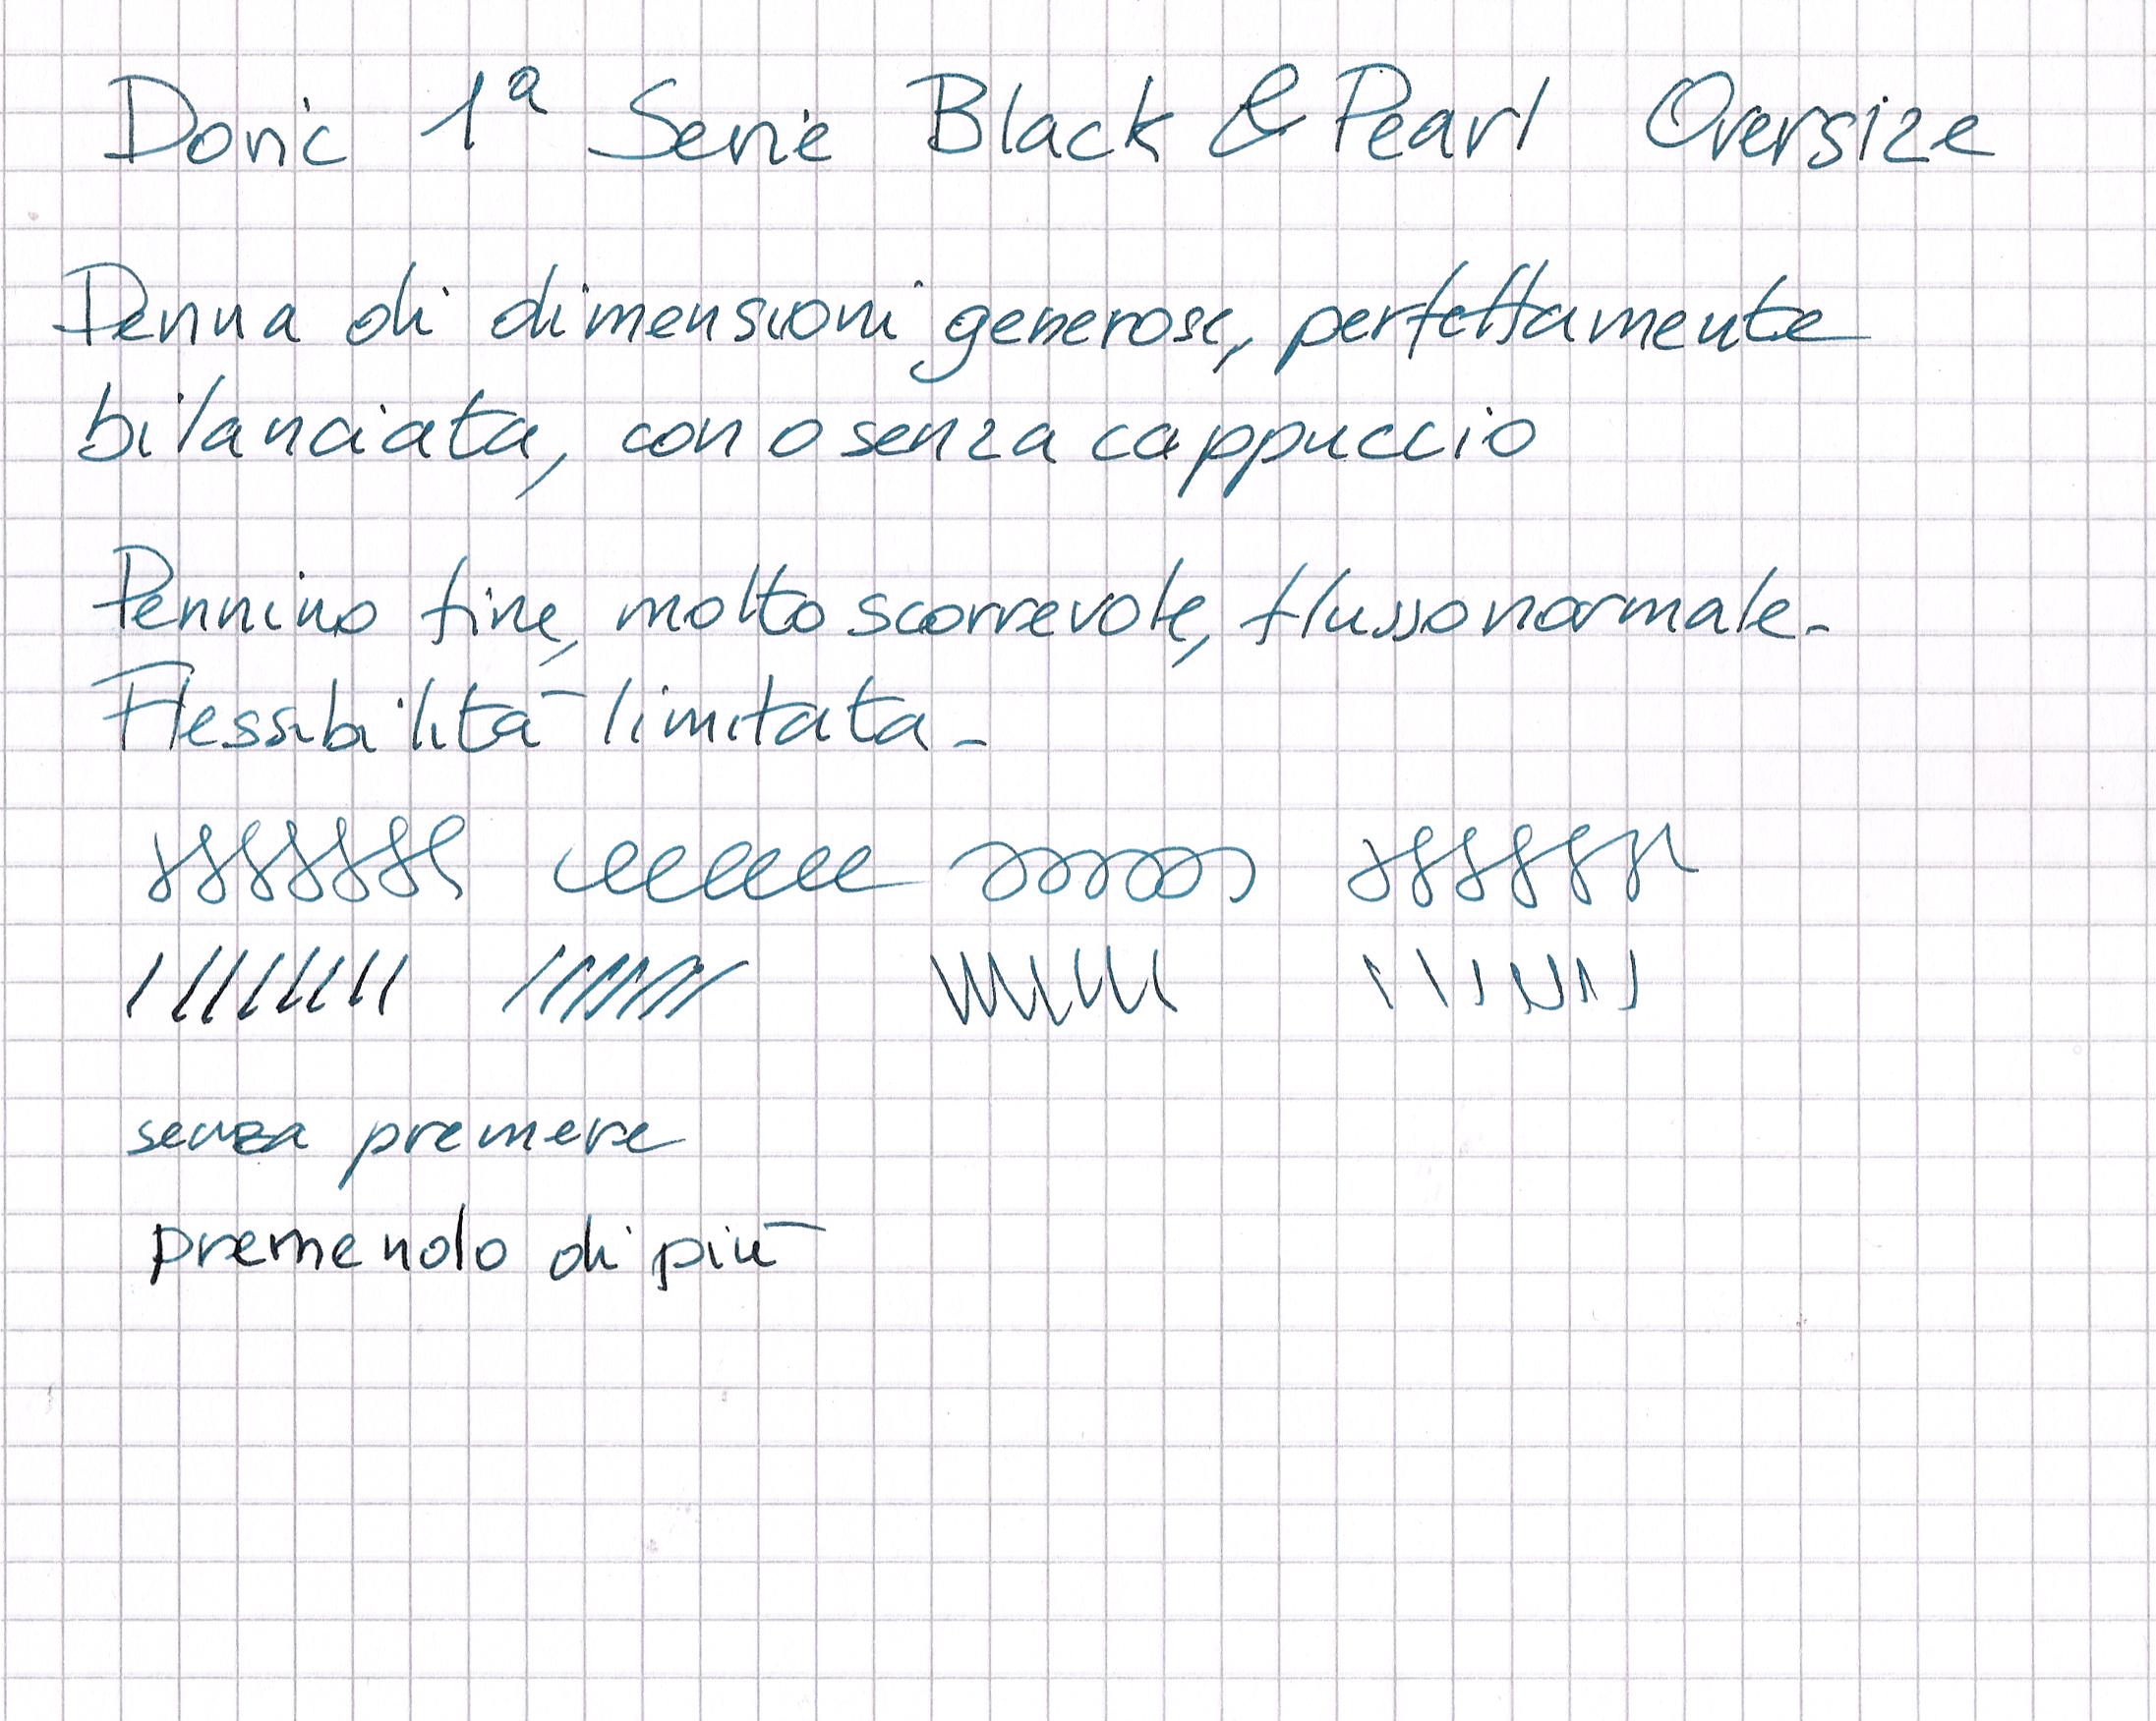 Doric 1ª Serie Black & Pearl Oversize
Penna di dimensioni generose, perfettamente
bilanciata, con o senza cappuccio
Pennino fine, molto scorrevole, flusso normale.
Flessibilità limitata.
senza premere
premendo di più